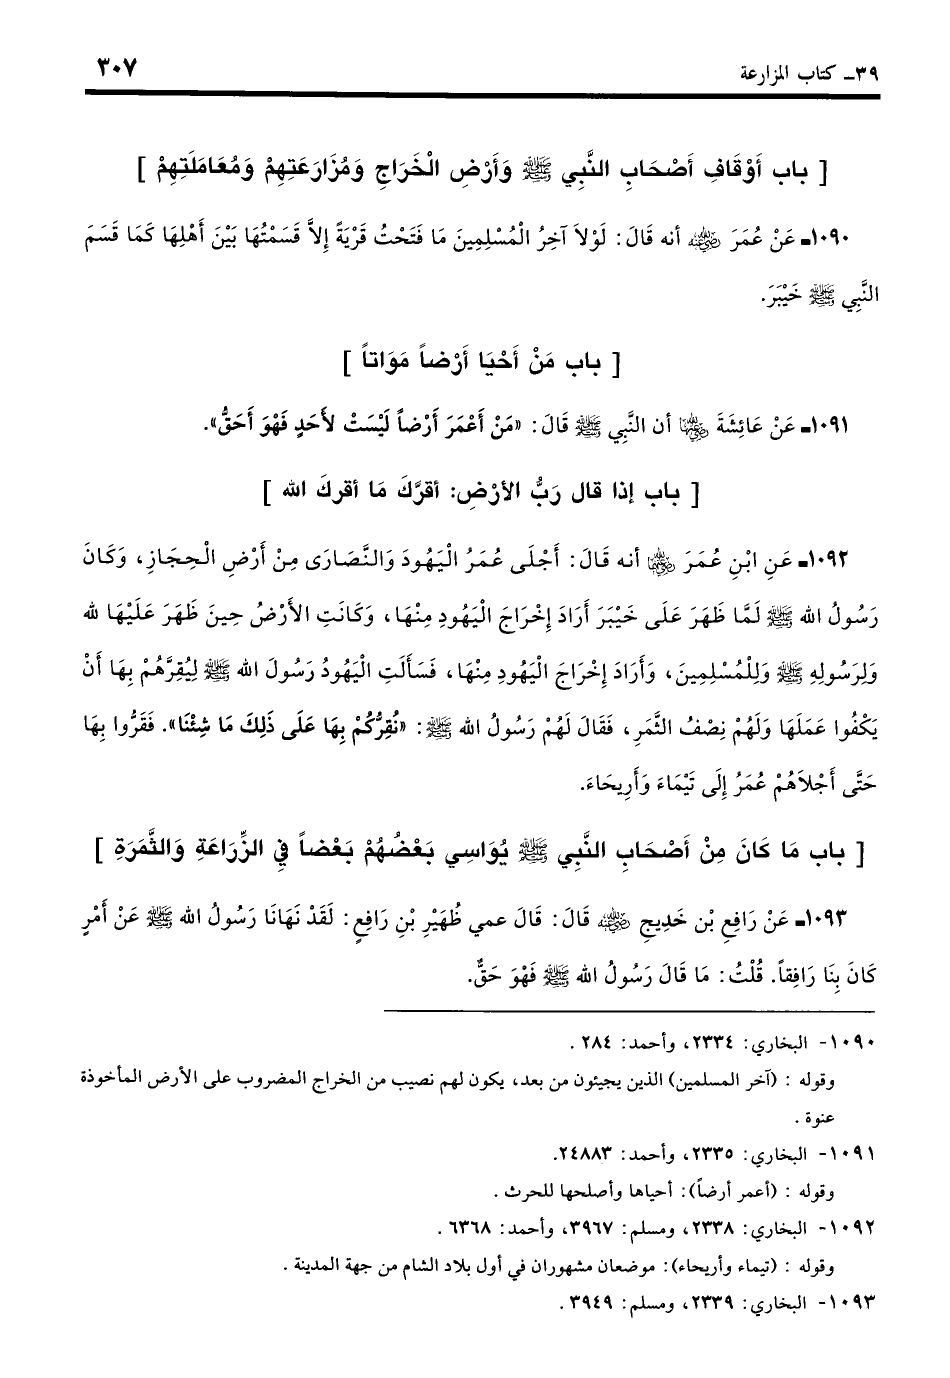 ٣٩ـ كتاب المزارعة ٣٠٧
[ باب أَوْقَافِ أَصْحَابِ النَّبِي ﷺ وَأَرْضِ الْخَرَاجِ وَمُزَارَعَتِهِمْ وَمُعَامَلَتِهِمْ ]
١٠٩٠ـ عَنْ عُمَرَ رضي الله عنه أنه قَالَ: لَوْلاَ آخِرُ الْمُسْلِمِينَ مَا فَتَحْتُ قَرْيَةً إِلاَّ قَسَمْتُهَا بَيْنَ أَهْلِهَا كَمَا قَسَمَ
النَّبِي ﷺ خَيْبَرَ.
[ باب مَنْ أَحْيَا أَرْضاً مَوَاتاً ]
١٠٩١ـ عَنْ عَائِشَةَ رضي الله عنها أن النَّبِي ﷺ قَالَ: «مَنْ أَعْمَرَ أَرْضاً لَيْسَتْ لأَحَدٍ فَهْوَ أَحَقُّ».
[ باب إذا قال رَبُّ الأرْضِ: أقرَّكَ مَا أقركَ الله ]
١٠٩٢ـ عَنِ ابْنِ عُمَرَ رضي الله عنهما أنه قَالَ: أَجْلَى عُمَرُ الْيَهُودَ وَالنَّصَارَى مِنْ أَرْضِ الْحِجَازِ، وَكَانَ
رَسُولُ الله ﷺ لَمَّا ظَهَرَ عَلَى خَيْبَرَ أَرَادَ إِخْرَاجَ الْيَهُودِ مِنْهَا، وَكَانَتِ الأَرْضُ حِينَ ظَهَرَ عَلَيْهَا لله
وَلِرَسُولِهِ ﷺ وَلِلْمُسْلِمِينَ، وَأَرَادَ إِخْرَاجَ الْيَهُودِ مِنْهَا، فَسَأَلَتِ الْيَهُودُ رَسُولَ الله ﷺ لِيُقِرَّهُمْ بِهَا أَنْ
يَكْفُوا عَمَلَهَا وَلَهُمْ نِصْفُ الثَّمَرِ، فَقَالَ لَهُمْ رَسُولُ الله ﷺ: «نُقِرُّكُمْ بِهَا عَلَى ذَلِكَ مَا شِئْنَا». فَقَرُّوا بِهَا
حَتَّى أَجْلاَهُمْ عُمَرُ إِلَى تَيْمَاءَ وَأَرِيحَاءَ.
[ باب مَا كَانَ مِنْ أَصْحَابِ النَّبِي ﷺ يُوَاسِي بَعْضُهُمْ بَعْضاً فِي الزِّرَاعَةِ وَالثَّمَرَةِ ]
١٠٩٣ـ عَنْ رَافِعِ بْن خَدِيجٍ رضي الله عنه قَالَ: قَالَ عمي ظُهَيْرِ بْنِ رَافِعٍ: لَقَدْ نَهَانَا رَسُولُ الله ﷺ عَنْ أَمْرٍ
كَانَ بِنَا رَافِقاً. قُلْتُ: مَا قَالَ رَسُولُ الله ﷺ فَهْوَ حَقٌّ.
١٠٩٠- البخاري: ٢٣٣٤، وأحمد: ٢٨٤ .
وقوله : (آخر المسلمين) الذين يجيئون من بعد، يكون لهم نصيب من الخراج المضروب على الأرض المأخوذة
عنوة .
١٠٩١- البخاري: ٢٣٣٥، وأحمد: ٢٤٨٨٣.
وقوله : (أعمر أرضاً): أحياها وأصلحها للحرث .
١٠٩٢- البخاري: ٢٣٣٨، ومسلم: ٣٩٦٧، وأحمد: ٦٣٦٨ .
وقوله : (تيماء وأريحاء): موضعان مشهوران في أول بلاد الشام من جهة المدينة .
١٠٩٣- البخاري: ٢٣٣٩، ومسلم: ٣٩٤٩ .